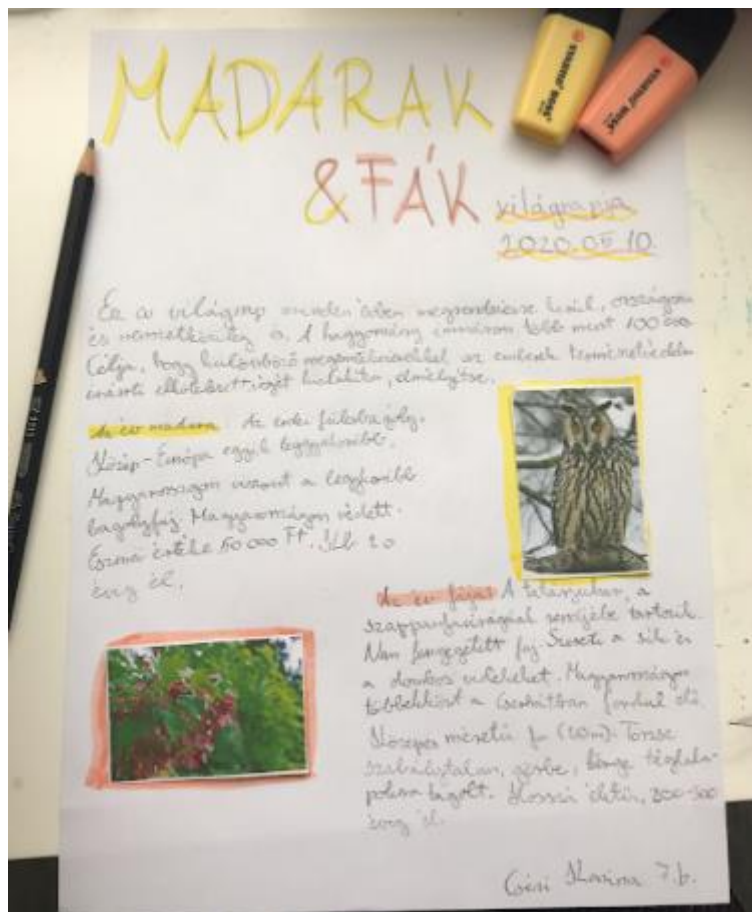 MADARAK
& FÁK
világnapja
2020.05.10.
Ez a világnap minden évben megrendezésre kerül, országos
és nemzetközileg is. A hagyomány immáron több mint 100 éves.
Célja, hogy különböző megemlékezésekkel az emberek természetvédelem
iránti elkötelezettségét kialakítsa, elmélyítse.
Az év madara: Az erdei fülesbagoly.
Közép-Európa egyik leggyakoribb,
Magyarországon viszont a leggyakoribb
bagolyfaj. Magyarországon védett.
Eszmei értéke 50 000 Ft. Kb. 20
évig él.
Az év fája: A tatárjuhar, a
szappanfavirágúak rendjébe tartozik.
Nem fenyegetett faj. Szereti a sík és
a dombos vidékeket. Magyarországon
többekközt a Cserhátban fordul elő.
Közepes méretű fa (10m). Törzse
szabálytalan, görbe, kérge
Hosszú életű, 200-300
évig él.
7.b.
STABILO BOSS
STABILO BOSS